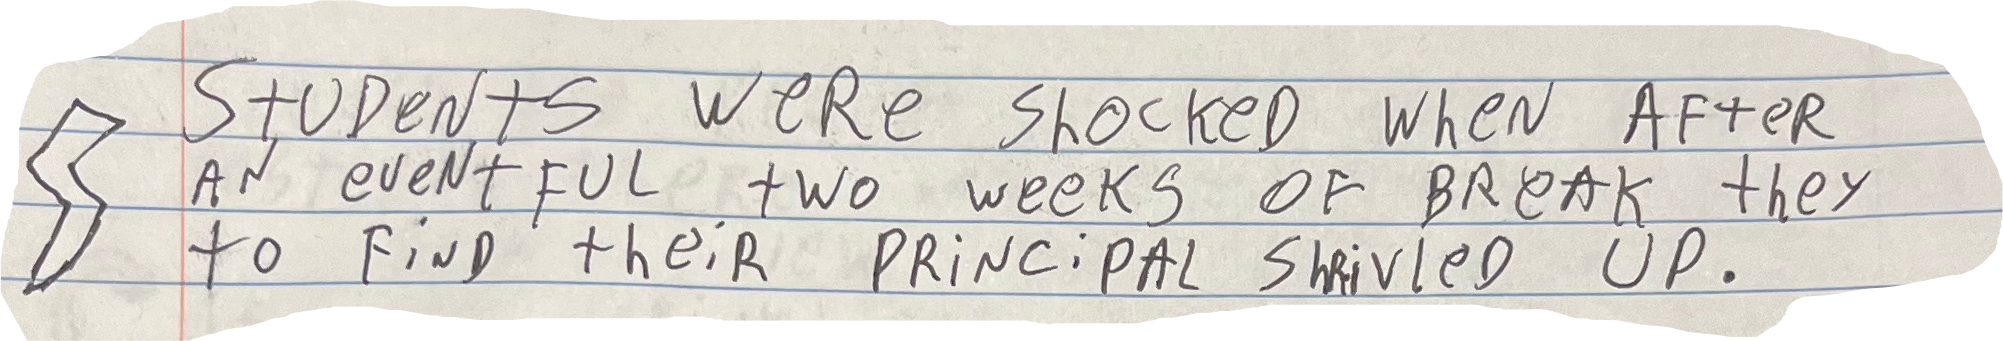 StUDeNtS WeRe ShOCKeD WheN AFteR
AN eveNtFUL tWO weeKS OF BReAK they
tO FiND theiR PRiNCiPAL ShRivleD UP.